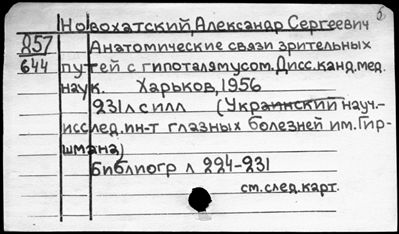 Новохатский, Александр Сергеевич
857
644
Анатомические связи зрительных
путей с гипоталямусом. Дисс. канд. мед.
наук. Харьков, 1956
231 л с илл (Украинский науч.-
исслед. ин-т глазных болезней им. Гир-
шмана)
библиогр л 224-231
см. след. карт.